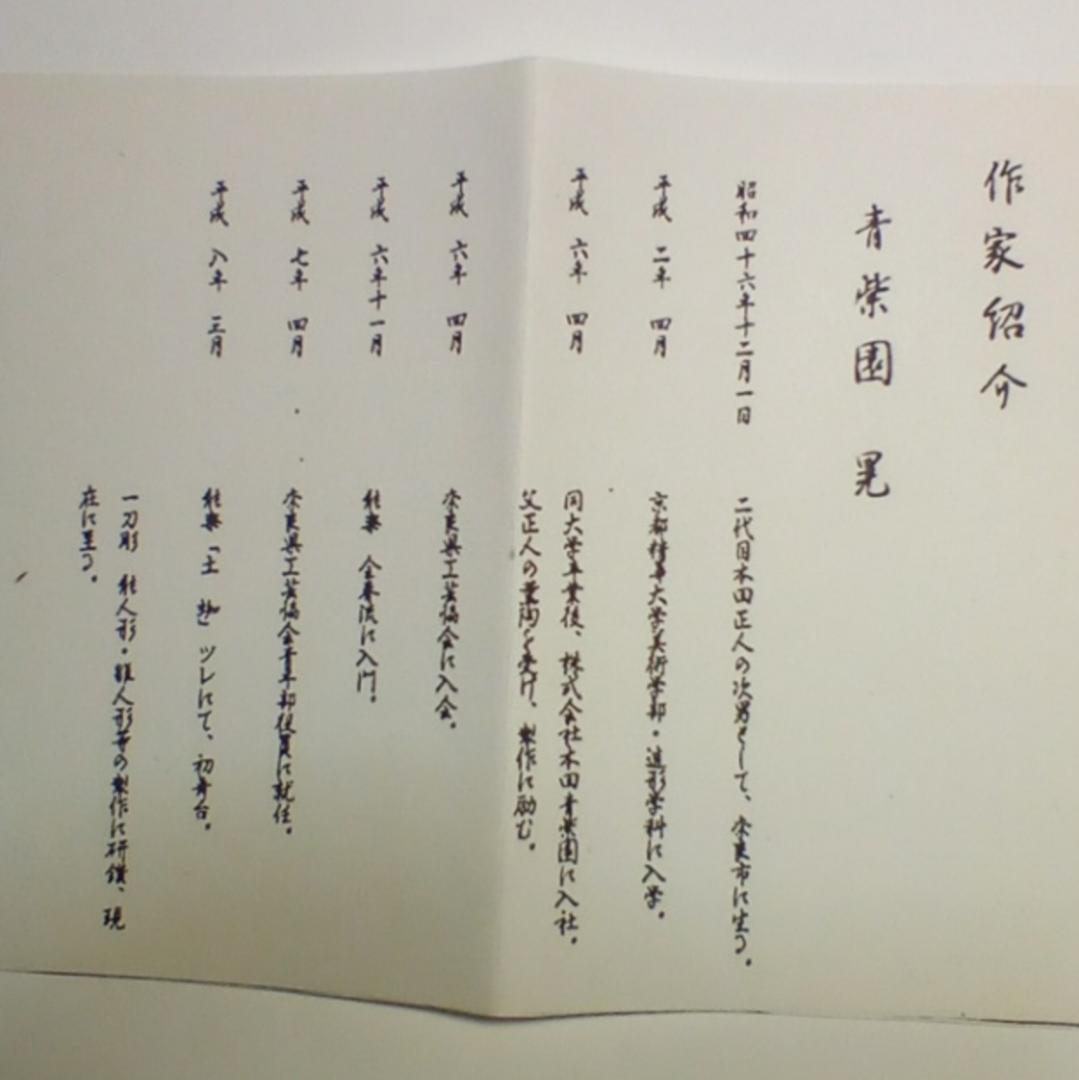 作家紹介
青柴園 晃
昭和四十六年十二月一日 二代目木田正人の次男として、奈良市に生る。
平成 二年 四月 京都精華大学美術学部・造形学科に入学。
平成 六年 四月 同大学卒業後、株式会社木田青柴園に入社。
父正人の薫陶を受け、製作に励む。
平成 六年 四月 奈良県工芸協会に入会。
平成 六年十一月 能楽 金春流に入門。
平成 七年 四月 奈良県工芸協会青年部役員に就任。
平成 八年 三月 能楽「土 蜘」ツレにて、初舞台。
一刀彫 能人形・雛人形等の製作に研鑽、現
在に至る。